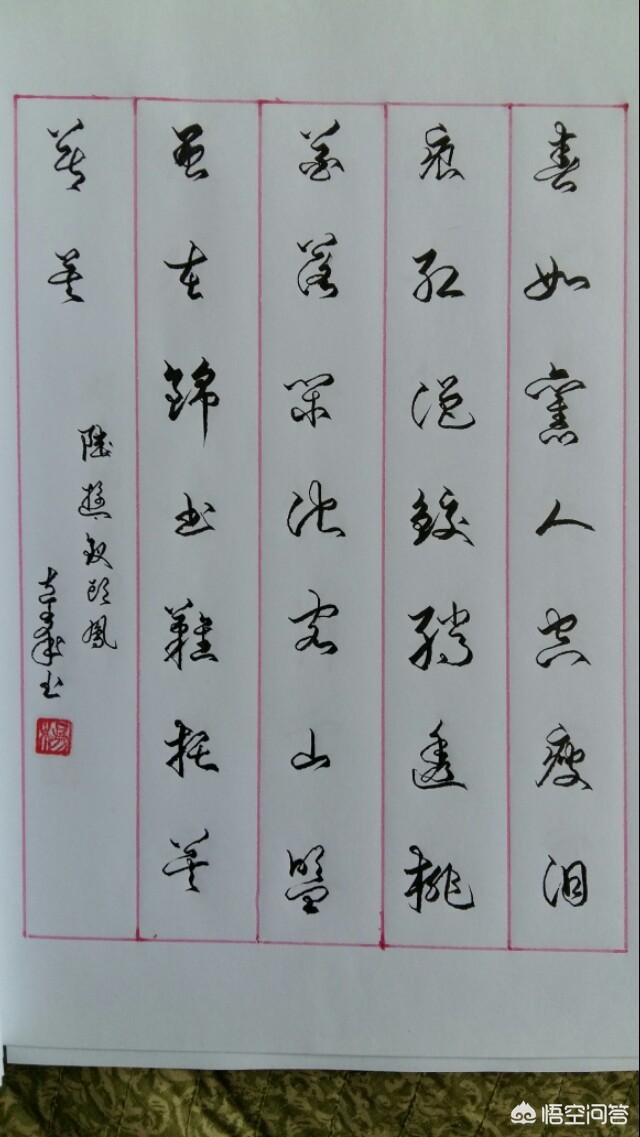 春如舊人空瘦泪
痕红浥鲛绡透桃
花落闲池阁山盟
虽在錦书難托莫
莫莫
陸游钗头凤
书
悟空问答